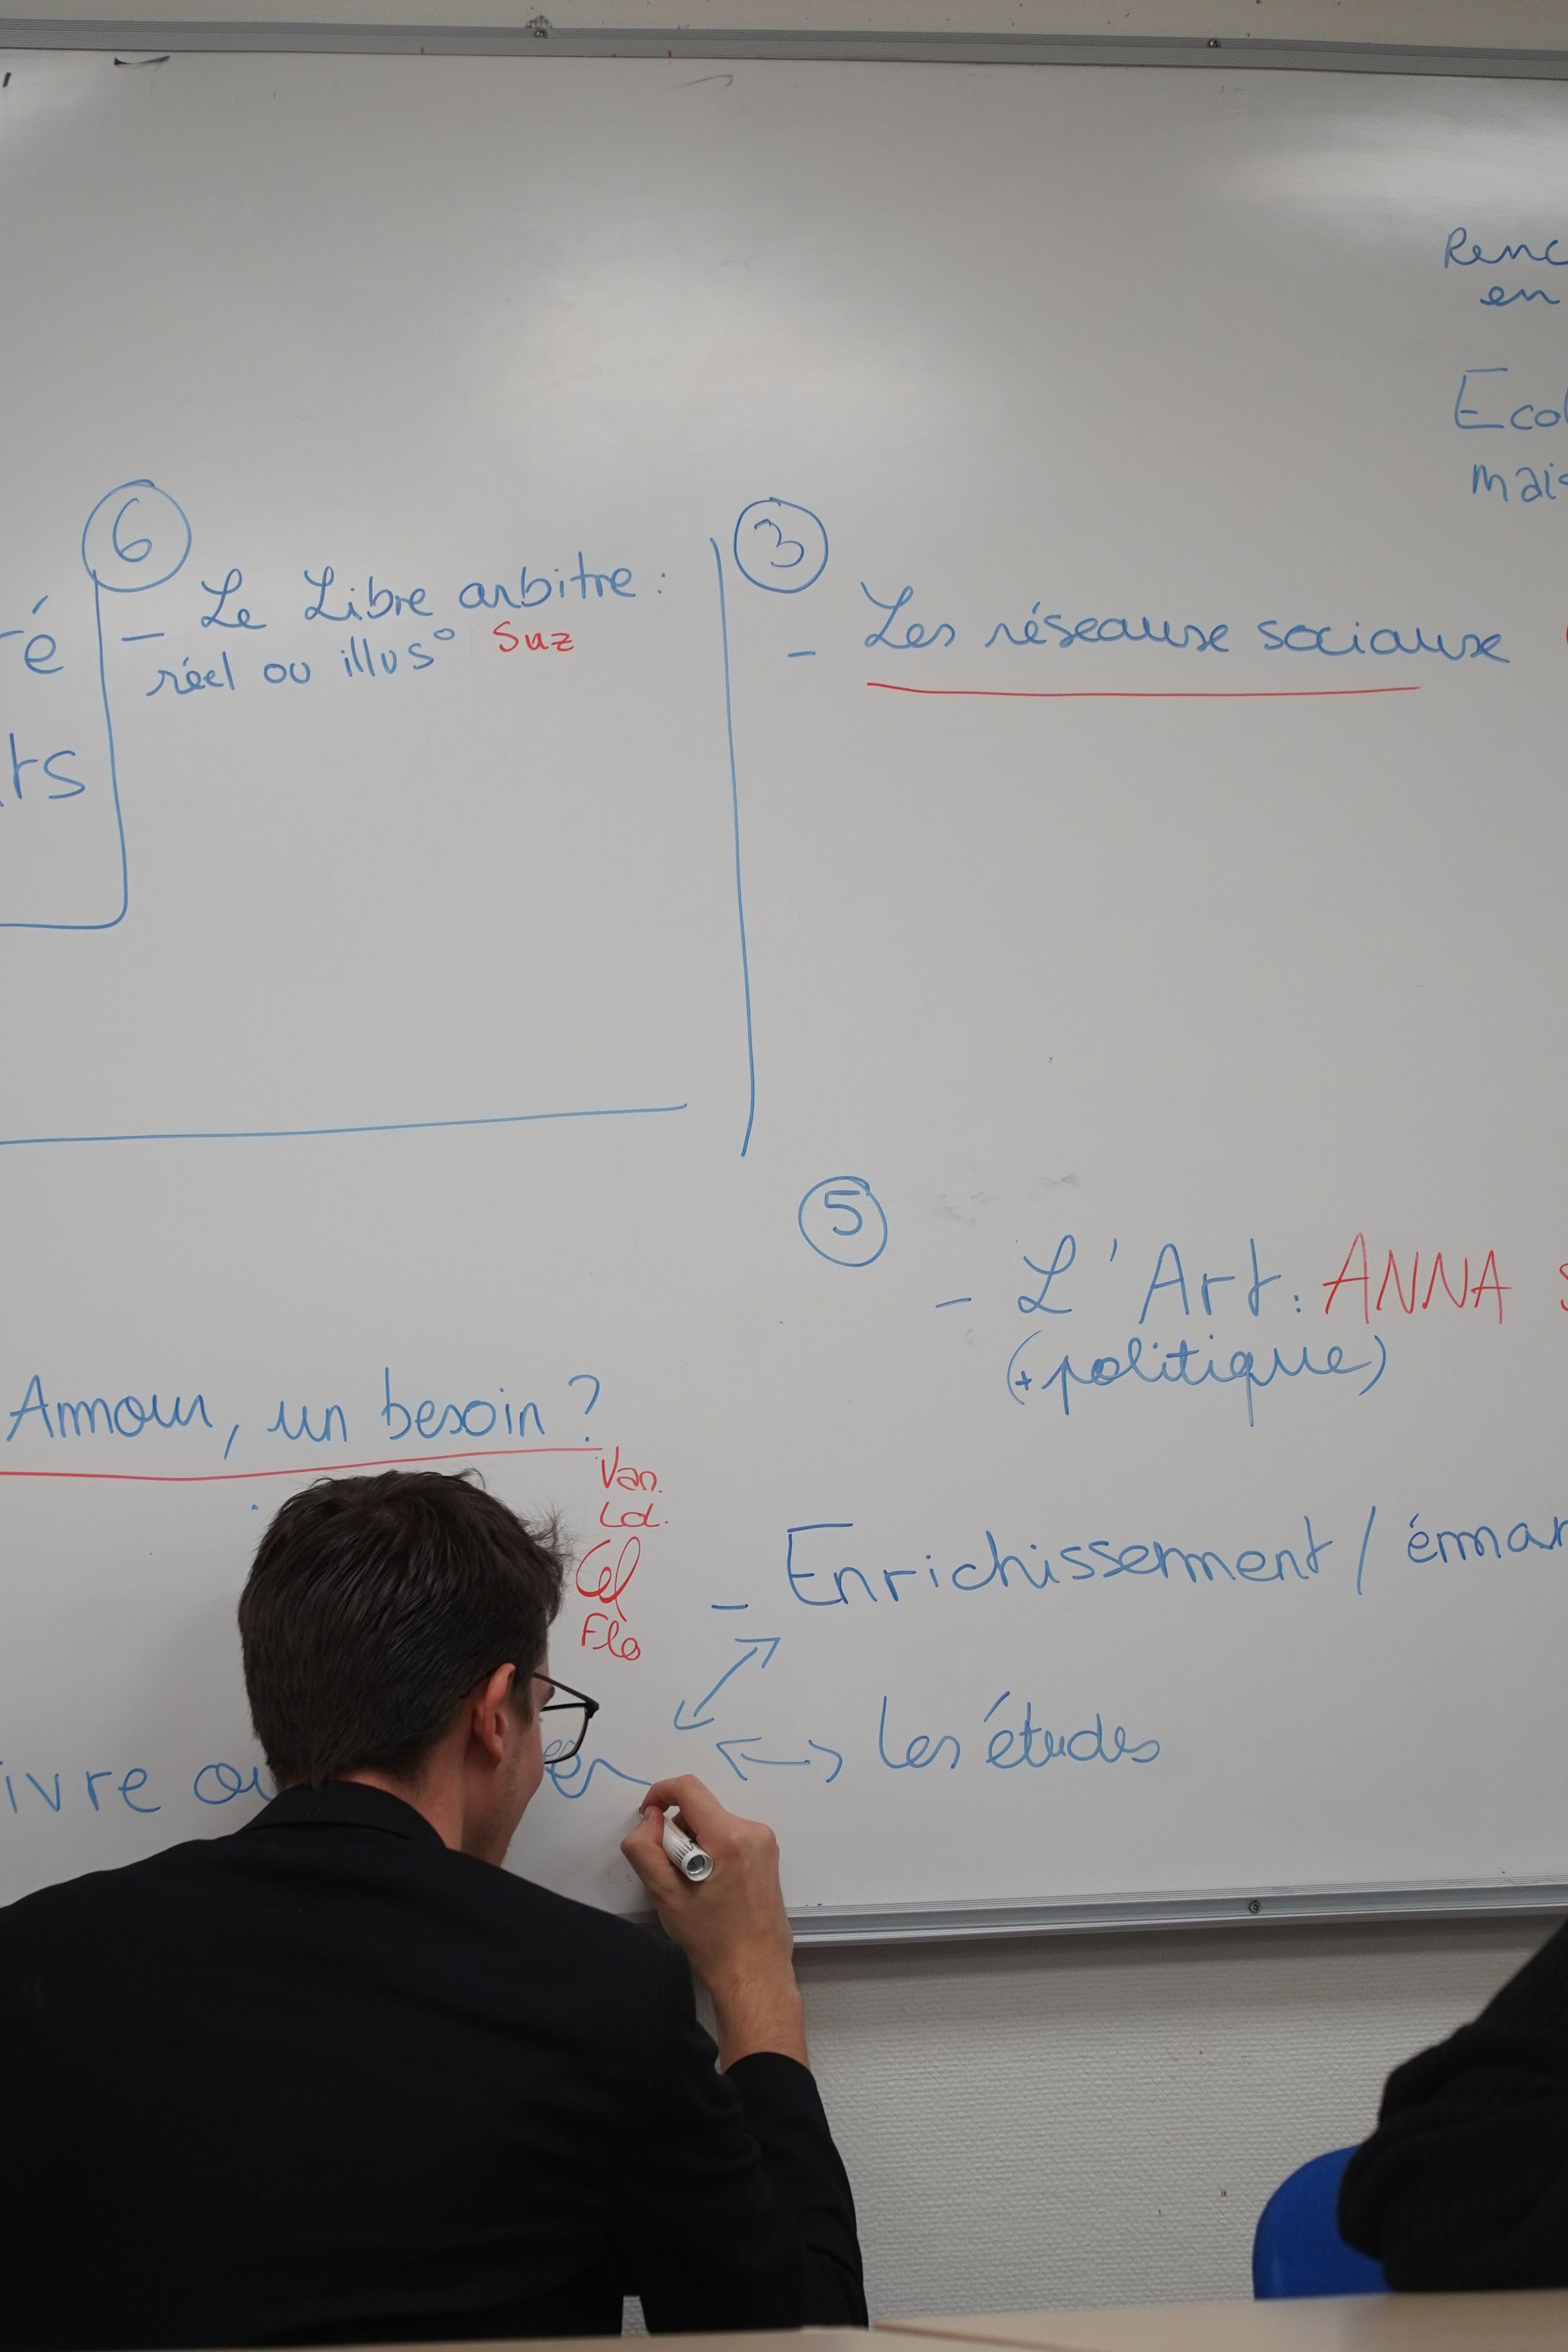 Renc
en
Ecol
mais
6
- Le Libre arbitre :
réel ou illus° Suz
ré
ts
3
- Les réseaux sociaux
5
- L'Art : ANNA S
(+ politique)
Amour, un besoin ?
Van.
Lol.
Cel
Flo
- Enrichissement / éman
ivre ou er
les études